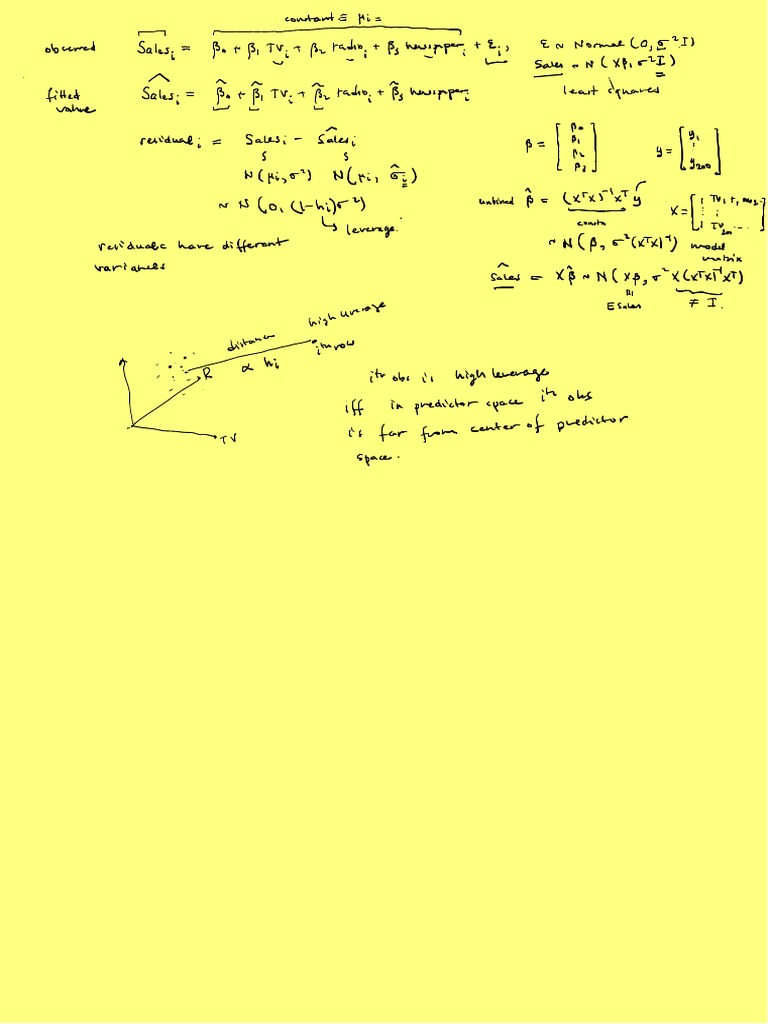 constant ≡ μi =
observed Salesi = β0 + β1 TVi + β2 radioi + β3 newspaperi + εi, ε ~ Normal (0, σ²I)
Sales ~ N (Xβ, σ²I)
least squares
fitted value Salesî = β̂0 + β̂1 TVi + β̂2 radioi + β̂3 newspaperi
residuali = Salesi − Salesî
N(μi, σ²) N(μi, σ̂i)
~ N (0, (1-hi)σ²)
leverage.
residuals have different
variances
β = [β0 β1 β2 β3] y = [y1 ⋮ y200]
β̂ = (XᵀX)⁻¹Xᵀ y
~ N(β, σ²(XᵀX)⁻¹)
model
matrix
Saleŝ = Xβ̂ ~ N(Xβ, σ² X(XᵀX)⁻¹Xᵀ)
E Sales ≠ I.
high leverage
distance
∝ hi
ith row
R
TV
ith obs is high leverage
iff in predictor space ith obs
is far from center of predictor
space.